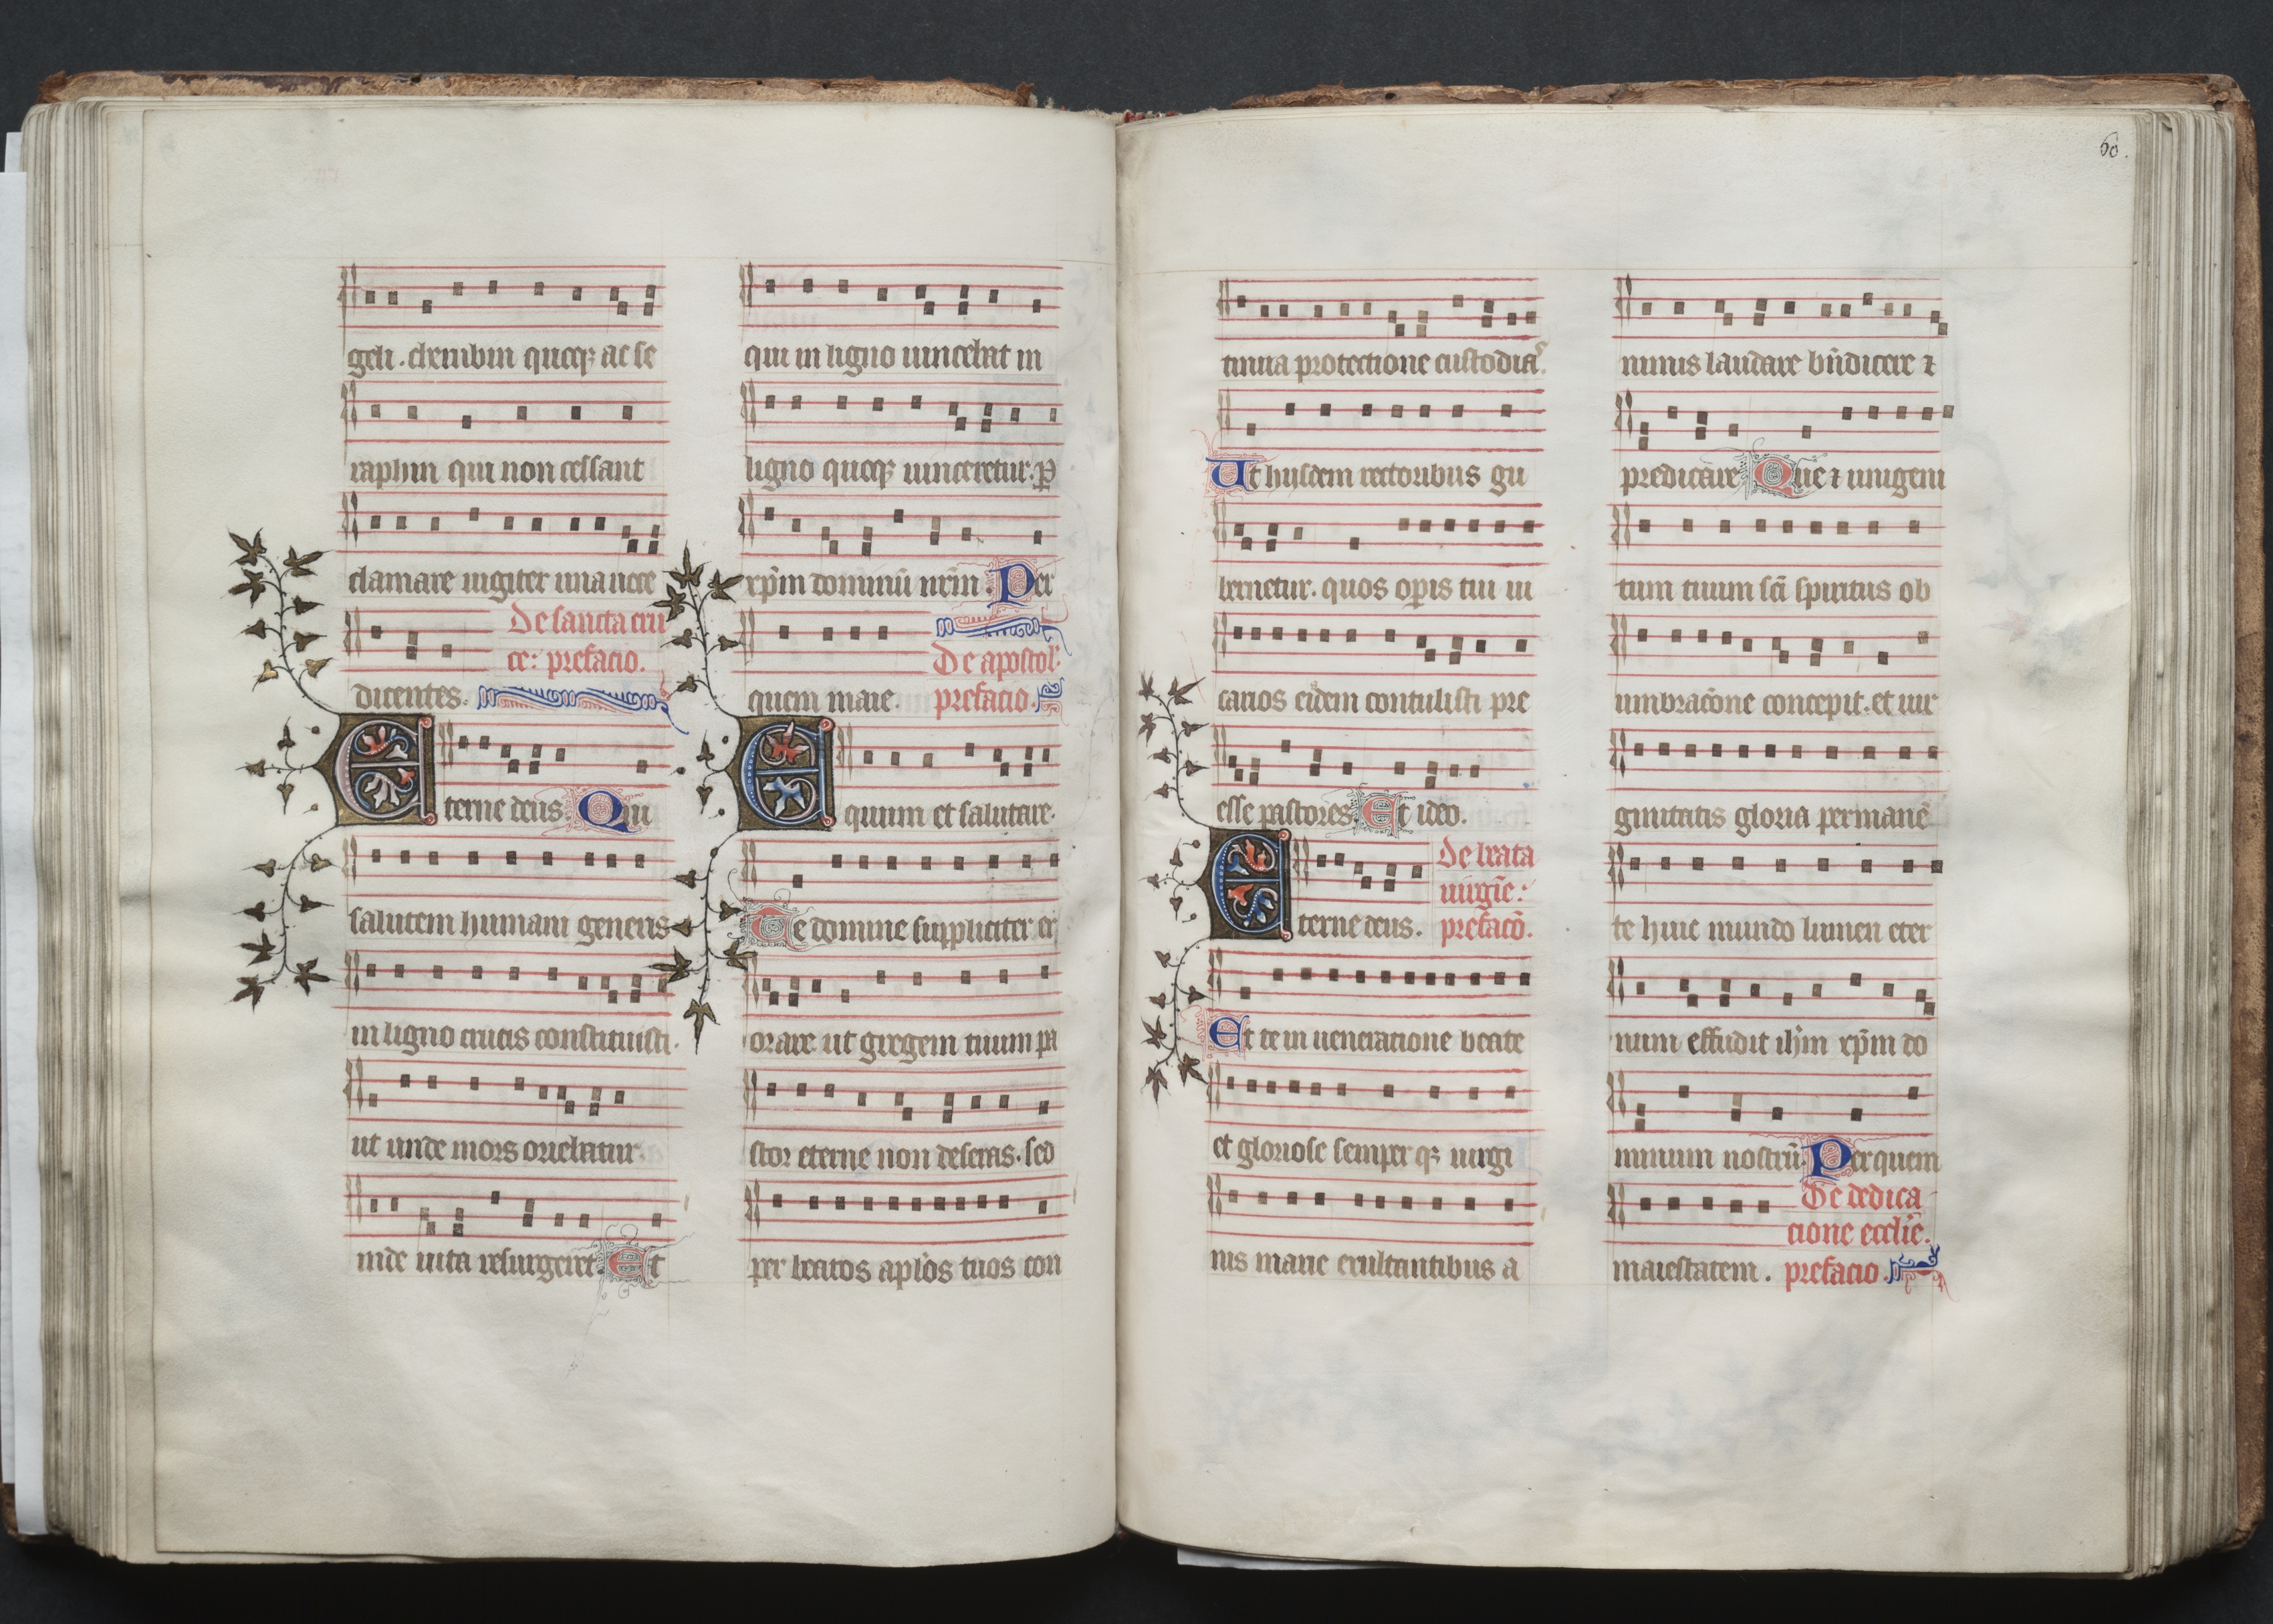 geli. cherubin quoq; ac se
raphin qui non cessant
clamare iugiter una uoce
De sancta cru
ce: prefacio.
dicentes.
Eterne deus. Qui
salutem humani generis
in ligno crucis constituisti.
ut unde mors oriebatur.
inde uita resurgeret. Et
qui in ligno uincebat in
ligno quoq; uinceretur. ꝑ
xp̄m dominū nr̄m. Per
De apostol'
quem maie. prefacio.
Equum et salutare.
Te domine suppliciter ex
orare ut gregem tuum pa
stor eterne non deseras. sed
per beatos apl'os tuos con
60.
tinua protectione custodias.
Ut hijsdem rectoribus gu
bernetur. quos oꝑis tui ui
carios eidem contulisti pre
esse pastores. Et ideo.
De beata
uirgīe:
Eterne deus. prefacō.
Et te in ueneratione beate
et gloriose semper q; uirgi
nis marie exultantibus a
nimis laudare bn̄dicere ⁊
predicare. Que ⁊ unigeni
tum tuum scī spiritus ob
umbracōne concepit. et uir
ginitatis gloria permanē
te huic mundo lumen eter
num effudit ihm̄ xp̄m do
minum nostrū. Per quem
De dedica
cione eccl'ie.
maiestatem. prefacio.